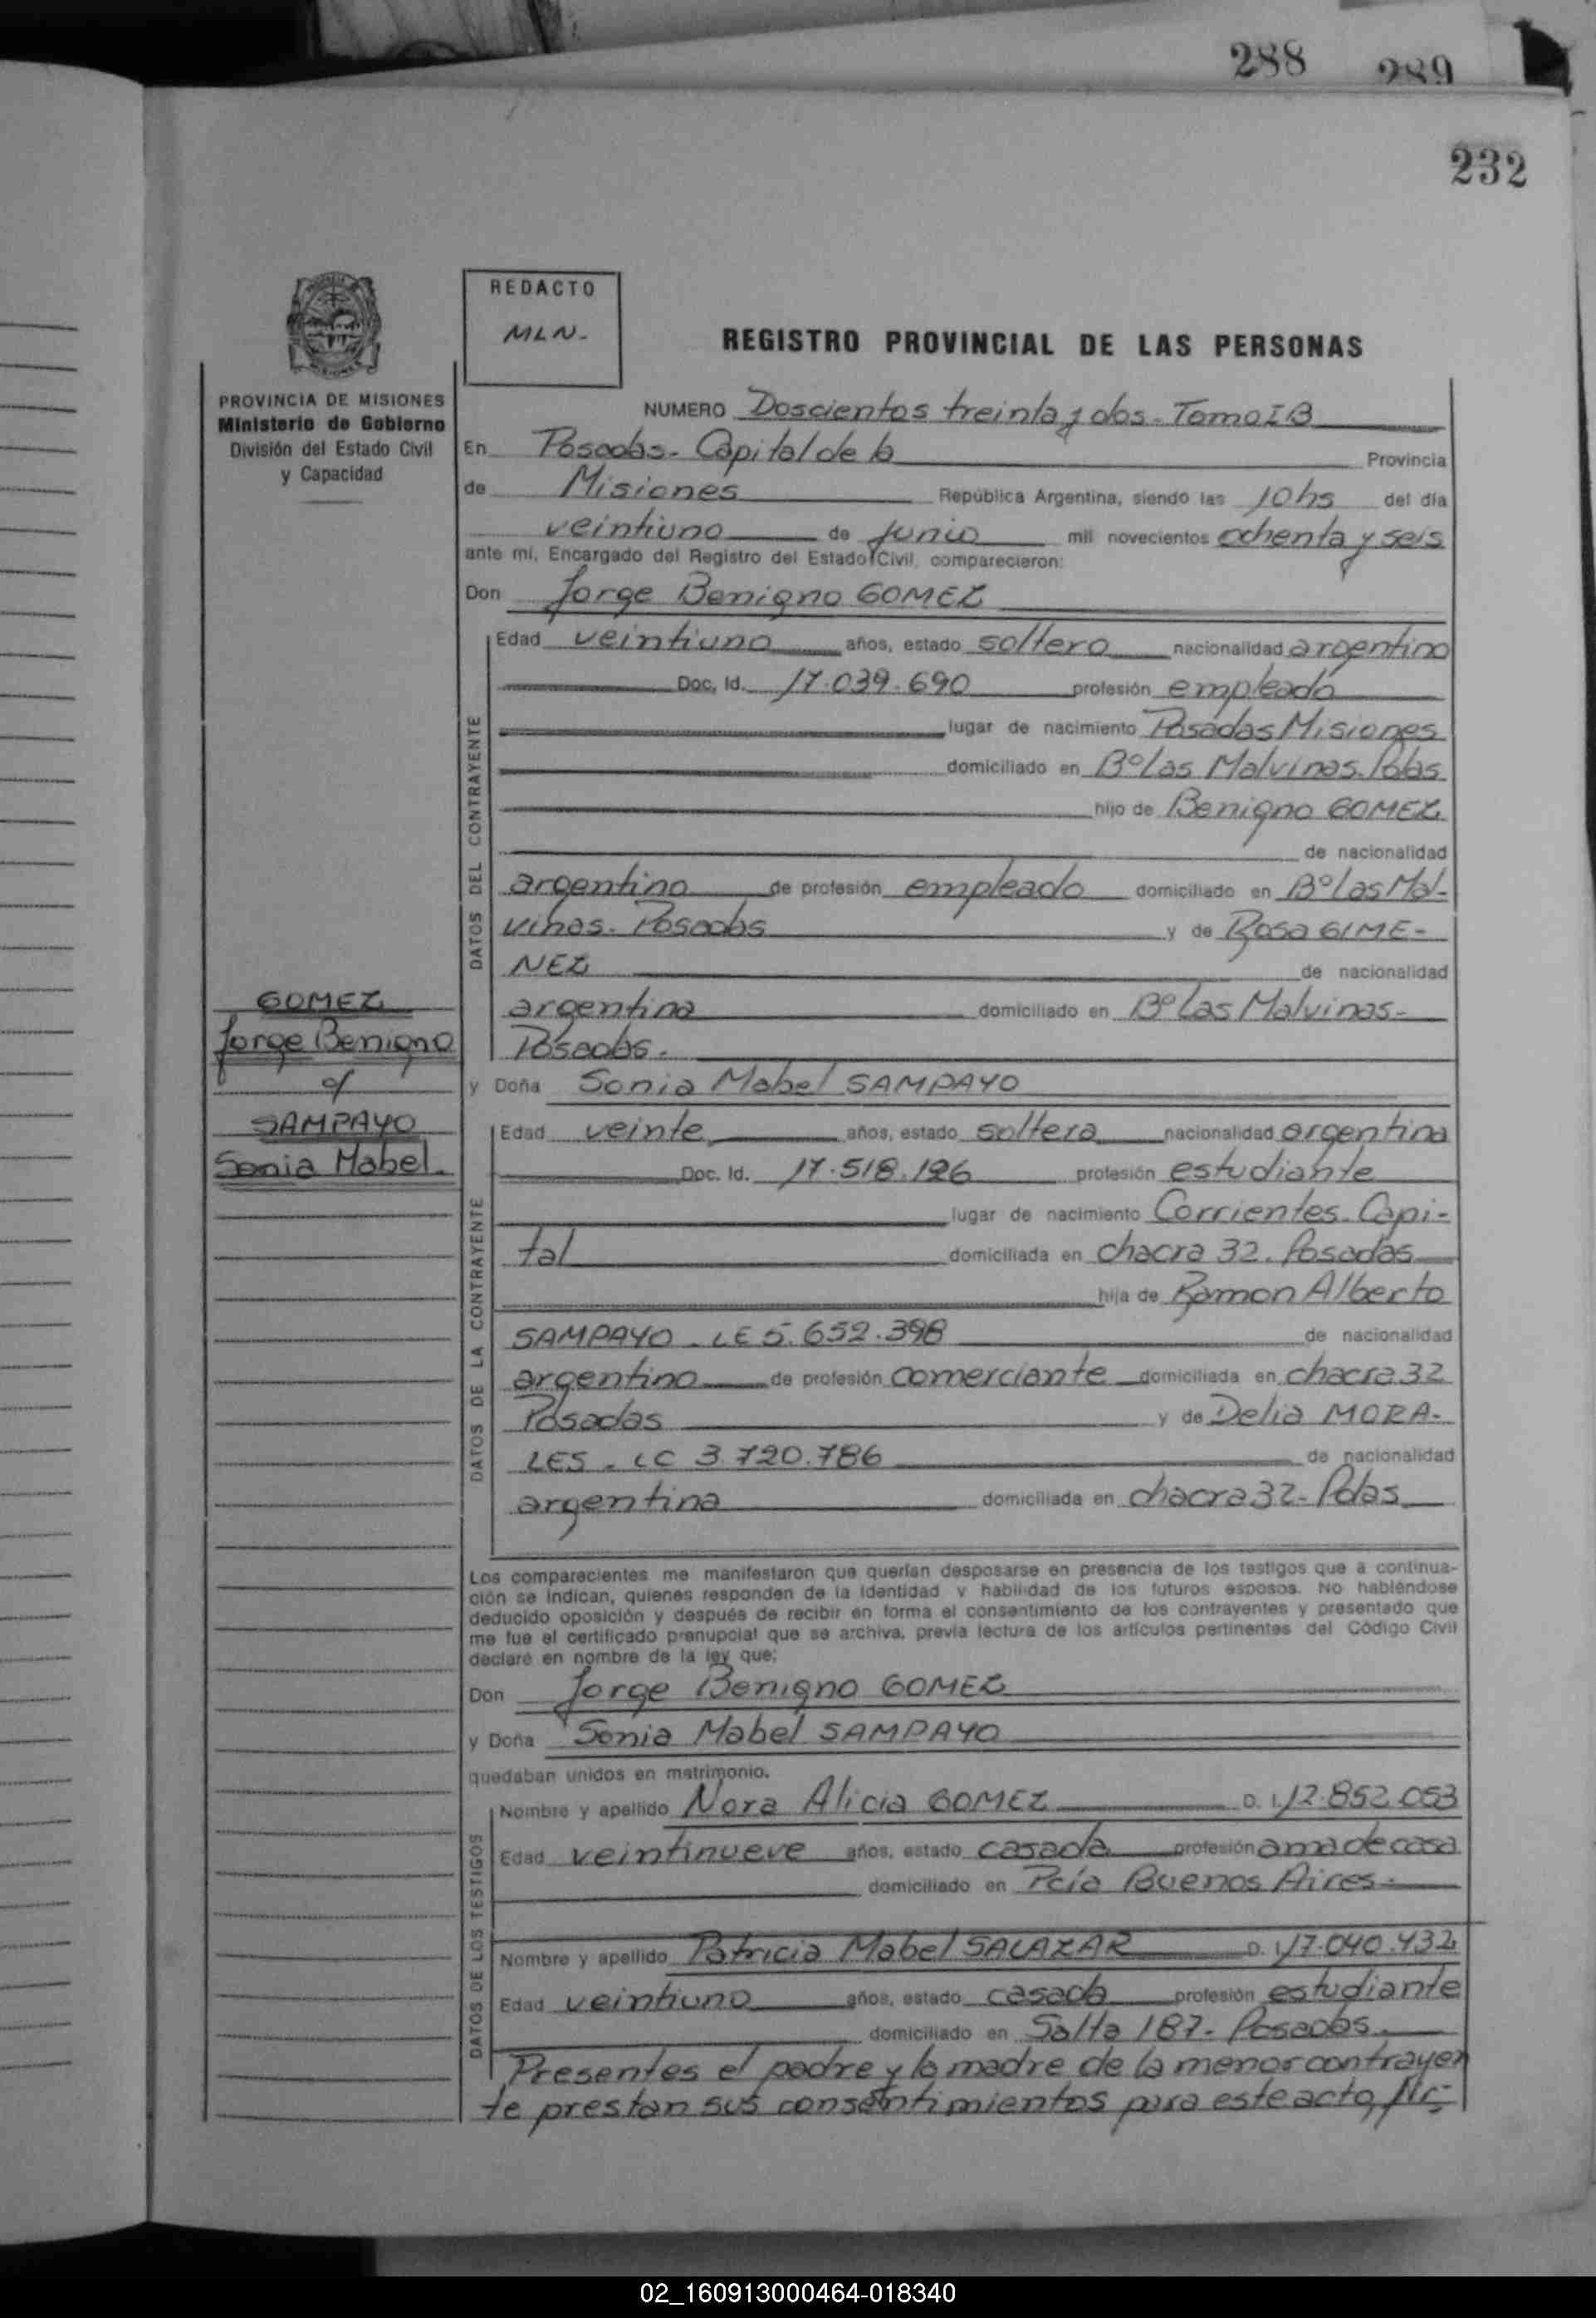 288 289
232
REDACTO
MLN.-
REGISTRO PROVINCIAL DE LAS PERSONAS
PROVINCIA DE MISIONES
Ministerio de Gobierno
División del Estado Civil
y Capacidad
NUMERO Doscientos treinta y dos - Tomo I B
En Posadas - Capital de la Provincia
de Misiones República Argentina, siendo las 10 hs del día
veintiuno de Junio mil novecientos ochenta y seis
ante mí, Encargado del Registro del Estado Civil, comparecieron:
Don Jorge Benigno GOMEZ
DATOS DEL CONTRAYENTE
Edad veintiuno años, estado soltero nacionalidad argentino
Doc. Id. 17.039.690 profesión empleado
lugar de nacimiento Posadas Misiones
domiciliado en Bº Las Malvinas. Pdas
hijo de Benigno GOMEZ
de nacionalidad
argentino de profesión empleado domiciliado en Bº Las Mal-
vinas - Posadas y de Rosa GIME-
NEZ de nacionalidad
argentina domiciliado en Bº Las Malvinas-
Posadas.
GOMEZ
Jorge Benigno
c/
SAMPAYO
Sonia Mabel.
y Doña Sonia Mabel SAMPAYO
DATOS DE LA CONTRAYENTE
Edad veinte años, estado soltera nacionalidad argentina
Doc. Id. 17.518.126 profesión estudiante
lugar de nacimiento Corrientes - Capi-
tal domiciliada en chacra 32. Posadas
hija de Ramon Alberto
SAMPAYO - LE 5.652.398 de nacionalidad
argentino de profesión comerciante domiciliada en chacra 32
Posadas y de Delia MORA-
LES - LC 3.720.786 de nacionalidad
argentina domiciliada en chacra 32 - Pdas
Los comparecientes me manifestaron que querían desposarse en presencia de los testigos que a continua-
ción se indican, quienes responden de la identidad y habilidad de los futuros esposos. No habiéndose
deducido oposición y después de recibir en forma el consentimiento de los contrayentes y presentado que
me fue el certificado prenupcial que se archiva, previa lectura de los artículos pertinentes del Código Civil
declaré en nombre de la ley que:
Don Jorge Benigno GOMEZ
y Doña Sonia Mabel SAMPAYO
quedaban unidos en matrimonio.
DATOS DE LOS TESTIGOS
Nombre y apellido Nora Alicia GOMEZ D. I. 12.852.053
Edad veintinueve años, estado casada profesión ama de casa
domiciliado en Pcia Buenos Aires.-
Nombre y apellido Patricia Mabel SALAZAR D. I. 17.040.432
Edad veintiuno años, estado casada profesión estudiante
domiciliado en Salta 187 - Posadas.
Presentes el padre y la madre de la menor contrayen
te prestan sus consentimientos para este acto,
02_160913000464-018340